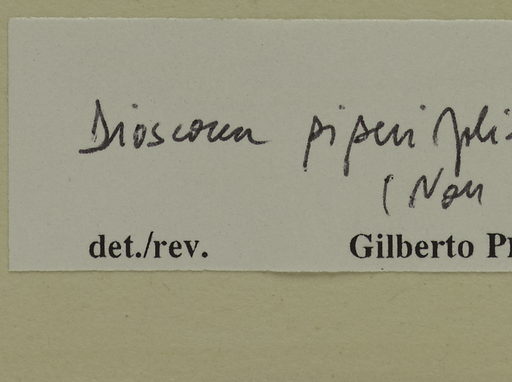 Dioscorea piperifoli
(Non
det./rev. Gilberto P